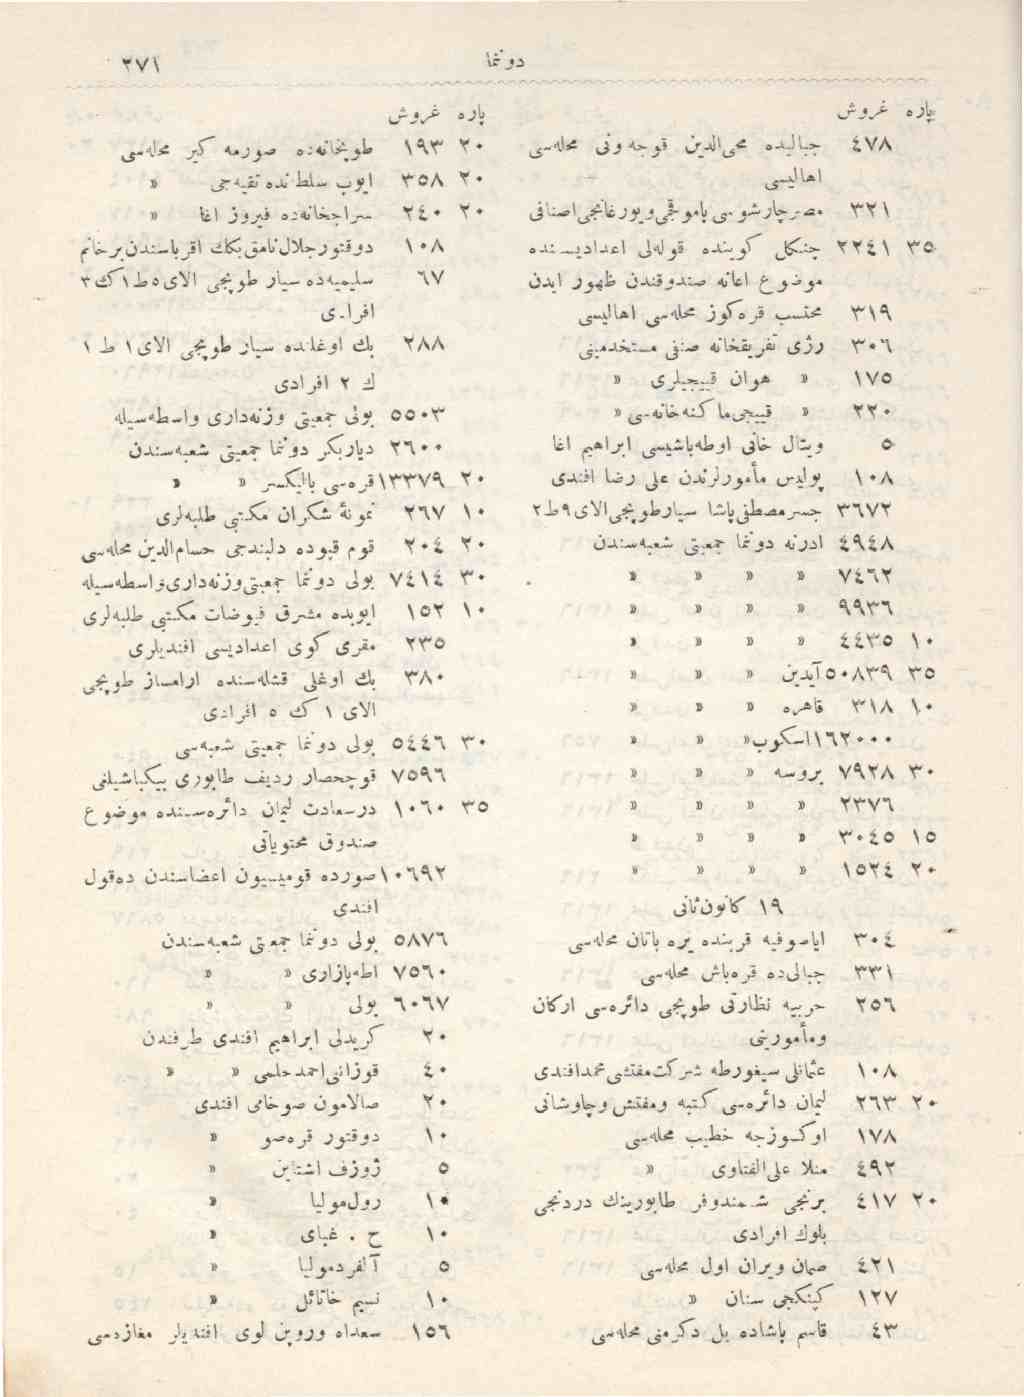 دونما ٢٧١
پاره غروش
٤٧٨ جبالیده محی‌الدین قوجه ونی محله‌سی
اهالیسی
٣٢١ مصرچارشوسی پاموقجی ویورغانجی اصنافی
٣٥ ٢٢٤١ چنکل کوینده قوله‌لی اعدادیسنده
موضوع اعانه صندوقندن ظهور ایدن
٣١٩ محتسب قره‌کوز محله‌سی اهالیسی
٣٠٦ رژی تفریقخانه صنفی مستخدمینی
١٧٥ » هوان قییجیلری »
٢٢٠ » قییجی‌ماکنه‌خانه‌سی »
٥ ویتال خانی اوطه‌باشیسی ابراهیم اغا
١٠٨ پولیس مأمورلرندن علی رضا افندی
٣٦٧٢ جسرمصطفی‌پاشا سیارطوپجی‌الای٩ط٢
٤٩٤٨ ادرنه دونما جمعیتی شعبه‌سندن
٧٤٦٢ » » » »
٩٩٣٦ » » » »
١٠ ٤٤٣٥ » » » »
٣٥ ٥٠٨٣٩ آیدین » » »
١٠ ٣١٨ قاهره » » »
١٦٢٠٠٠ اسکوب» » » »
٣٠ ٧٩٢٨ بروسه » » »
٢٣٧٦ » » » »
١٥ ٣٠٤٥ » » » »
٢٠ ١٥٢٤ » » » »
١٩ کانون‌ثانی
٣٠٤ ایاصوفیه قربنده یره باتان محله‌سی
٣٣١ جبالی‌ده قره‌باش محله‌سی
٢٥٦ حربیه نظارتی طوپجی دائره‌سی ارکان
ومأمورینی
١٠٨ عثمانلی سیغورطه شرکت‌مفتشی‌محمدافندی
٢٠ ٢٦٣ لیمان دائره‌سی کتبه ومفتش وچاوشانی
١٧٨ اوکسوزجه خطیب محله‌سی
٤٩٢ منلا علی‌الفناوی »
٢٠ ٤١٧ برنجی شمندوفر طابورینك دردنجی
بلوك افرادی
٤٢١ صمان ویران اول محله‌سی
١٢٧ کپنکجی سنان »
٤٣ قاسم پاشاده یل دکرمنی محله‌سی
پاره غروش
٢٠ ١٩٣ طوپخانه‌ده صورمه کیر محله‌سی
٢٠ ٣٥٨ ایوب سلطانده تقیه‌جی »
٢٠ ٢٤٠ سراجخانه‌ده فیروز اغا »
١٠٨ دوقتورجلال‌نامق‌بکك اقرباسندن‌برخانم
٦٧ سلیمیه‌ده سیار طوپجی الای٥ط١ك٣
افرادی
٢٨٨ بك اوغلنده سیار طوپجی الای١ ط ١
ك ٢ افرادی
٥٥٠٣ بولی جمعیتی وزنه‌داری واسطه‌سیله
٢٦٠٠ دیاربکر دونما جمعیتی شعبه‌سندن
٢٠ ١٣٣٧٩ قره‌سی بالیکسر » »
١٠ ٢٦٧ نمونهٔ شکران مکتبی طلبه‌لری
٢٠ ٢٠٤ قوم قپوده دلبندجی حسام‌الدین محله‌سی
٣٠ ٧٤١٤ بولی دونما جمعیتی‌وزنه‌داری‌واسطه‌سیله
١٠ ١٥٢ ایوبده مشرق فیوضات مکتبی طلبه‌لری
٢٣٥ مقری کوی اعدادیسی افندیلری
٣٨٠ بك اوغلی قشله‌سنده ارامساز طوپجی
الای ١ ك ٥ افرادی
٣٠ ٥٤٤٦ بولی دونما جمعیتی شعبه‌سی
٧٥٩٦ قوچحصار ردیف طابوری بیکباشیلغی
٣٥ ١٠٦٠ درسعادت لیمان دائره‌سنده موضوع
صندوق محتویاتی
١٠٦٩٢ صورده قومیسیون اعضاسندن ده‌قول
افندی
٥٨٧٦ بولی دونما جمعیتی شعبه‌سندن
٧٥٦٠ اطه‌پازاری » »
٦٠٦٧ بولی » »
٢٠ کریدلی ابراهیم افندی طرفندن
٤٠ قوزانی‌احمدحلمی » »
٢٠ صالامون صوخامی افندی
١٠ دوقتور قره‌صو »
٥ ژوزف اشتاین »
١٠ رول‌مولیا »
١٠ ح . غبای »
٥ آلفردمولیا »
١٠ نسیم خاتائل »
١٥٦ سعداه وروبن لوی افندیلر مغازه‌سی